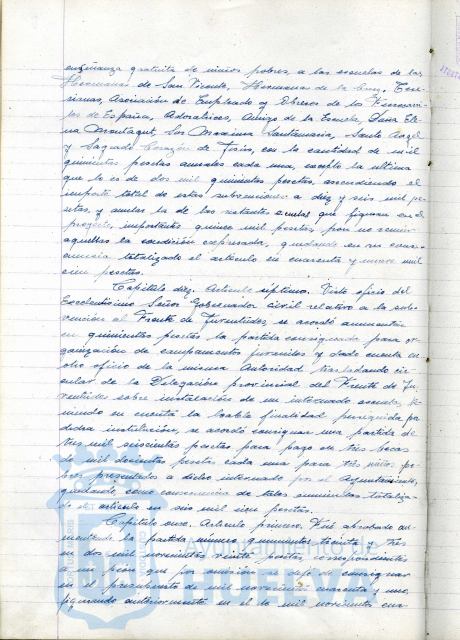 enseñanza gratuita de niños pobres, a las escuelas de las
Hermanas de San Vicente, Hermanas de la Cruz, Tere-
sianas, Asociación de Empleados y Obreros de los Ferrocarri-
les de España, Adoratrices, Amigo de la Escuela, Santa Ele-
na Montagut, Los Maxima Santamaria, Santo Angel
y Sagrado Corazón de Jesús, con la cantidad de mil
quinientas pesetas anuales cada una, excepto la ultima
que lo es de dos mil quinientas pesetas, ascendiendo el
importe total de estas subvenciones a diez y seis mil pe-
setas, y anular la de las restantes escuelas que figuran en el
proyecto, importantes quince mil pesetas, por no reunir
aquellas la condición expresada, quedando en su conse-
cuencia totalizado el artículo en cuarenta y nueve mil
cien pesetas.
Capítulo diez. Artículo séptimo. Visto oficio del
Excelentísimo Señor Gobernador civil relativo a la sub-
vención al Frente de Juventudes, se acordó aumentar
en quinientas pesetas la partida consignada para or-
ganización de campamentos juveniles y dada cuenta de
otro oficio de la misma Autoridad trasladando cir-
cular de la Delegación provincial del Frente de Ju-
ventudes sobre instalación de un internado escuela, te-
niendo en cuenta la loable finalidad perseguida por
dicha institución, se acordó consignar una partida de
tres mil seiscientas pesetas para pago de tres becas
de mil doscientas pesetas cada una para tres niños po-
bres presentados a dicho internado por el Ayuntamiento,
quedando, como consecuencia de tales aumentos totaliza-
do el artículo en seis mil cien pesetas.
Capítulo once. Artículo primero. Fué aprobado au-
mentando la partida número quinientos treinta y tres
en dos mil novecientas veinte pesetas correspondientes
a un peón que por omisión se dejó de consignar
en el presupuesto de mil novecientos cuarenta y uno,
figurando anteriormente en el de mil novecientos cua-
Ayuntamiento de
HUELVA